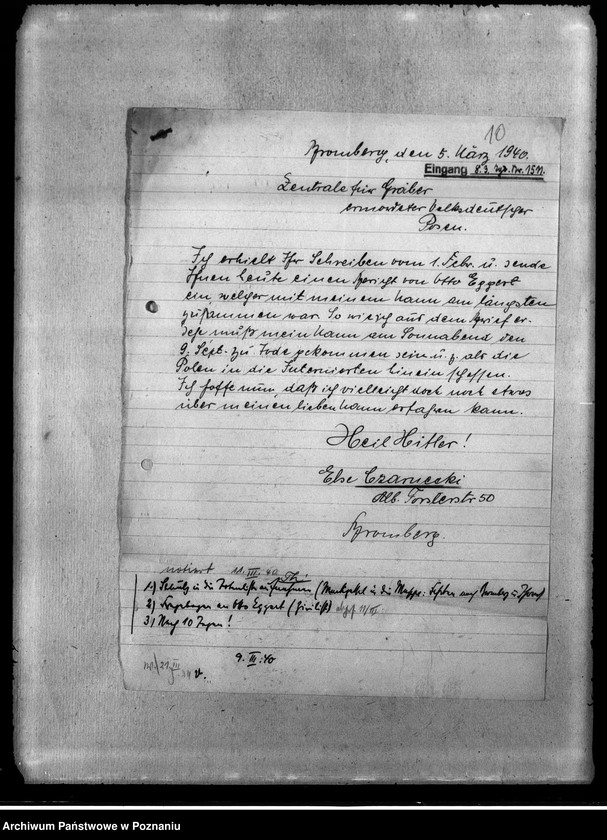 10
Bromberg, den 5. März 1940.
Eingang 8.3. Nr. 1511.
Zentrale für Gräber
ermordeter Volksdeutscher
Posen.
Ich erhielt Ihr Schreiben vom 1. Febr. u. sende
Ihnen heute einen Bericht von Otto Eggert
ein welcher mit meinem Mann am längsten
zusammen war. So wie ich aus dem Brief er-
sehe muß mein Mann am Sonnabend den
9. Sept. zu Tode gekommen sein u. z. als die
Polen in die Internierten hinein schossen.
Ich hoffe nun, daß ich vielleicht doch noch etwas
über meinen lieben Mann erfahren kann.
Heil Hitler!
Else Czarnecki
Alb. Forsterstr 50
Bromberg.
notiert 11. III. 40
1) in die aufnehmen in die Mappe:
2) Fragebogen an Otto Eggert (Zivilist) 11/III.
3) Nach 10 Tagen!
9. III. 40
Archiwum Państwowe w Poznaniu